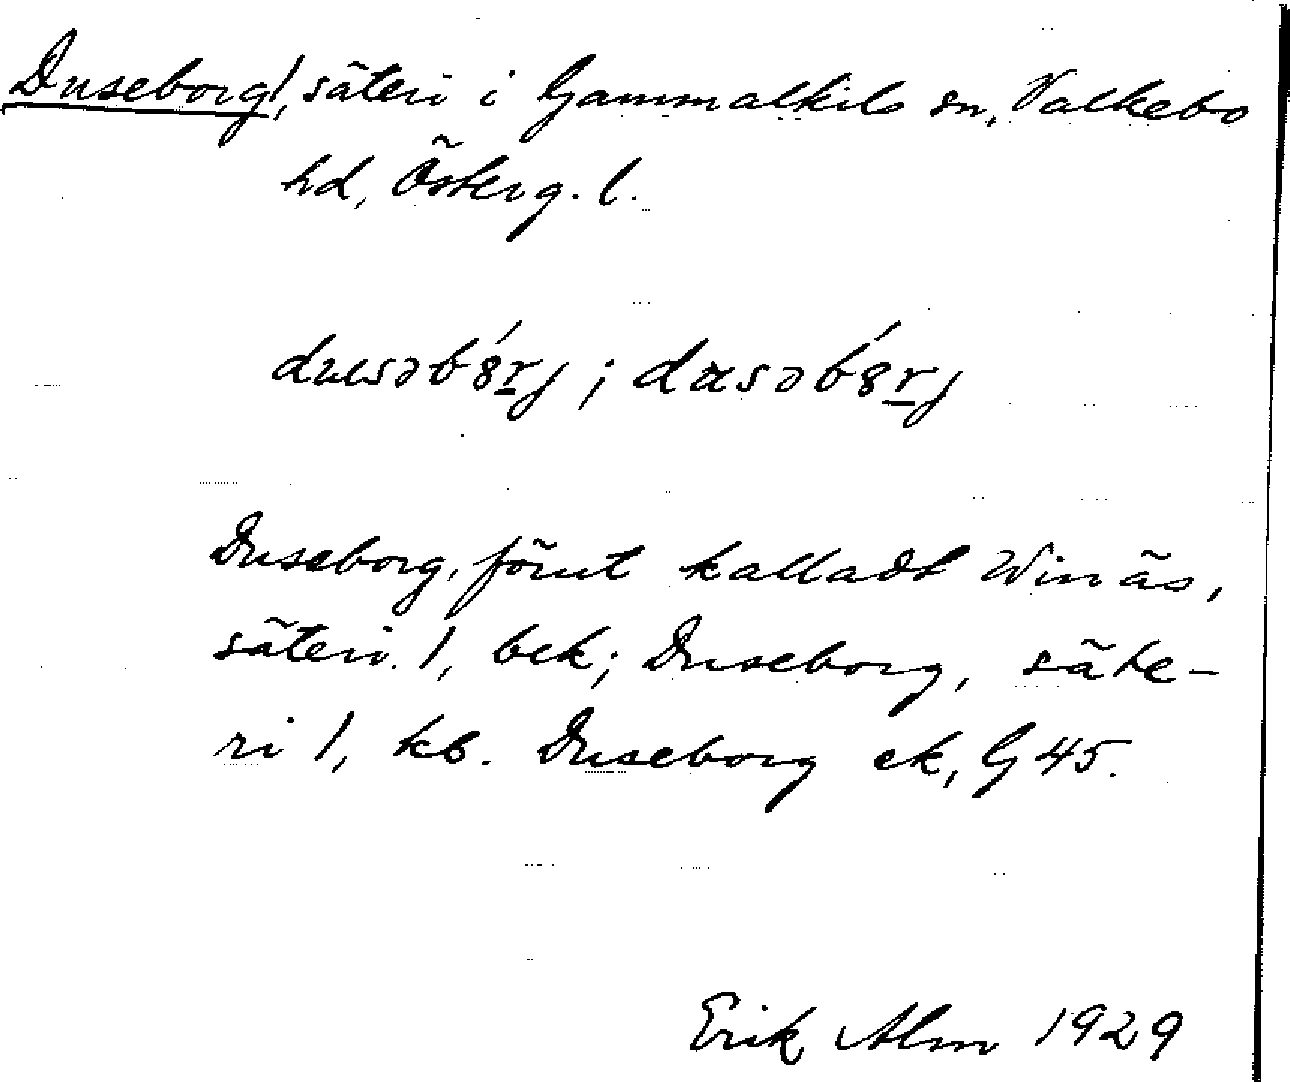 Duseborg, säteri i Gammalkils sn, Valkebo
hd, Österg. l.
dusəb8́rj ; dɑsəb8́rj
Duseborg, förut kalladt Winäs,
säteri 1, bek; Duseborg, säte-
ri 1, kb. Duseborg ek, G 45.
Erik Alm 1929